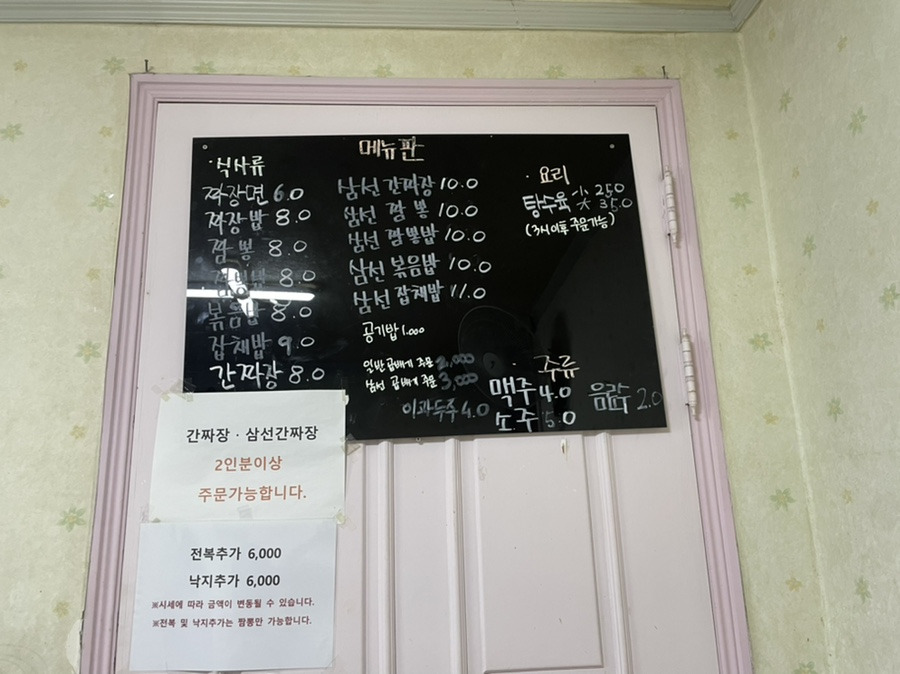 메뉴판
·식사류
짜장면 6.0
짜장밥 8.0
짬뽕 8.0
8.0
볶음밥 8.0
잡채밥 9.0
간짜장 8.0
삼선 간짜장 10.0
삼선 짬뽕 10.0
삼선 짬뽕밥 10.0
삼선 볶음밥 10.0
삼선 잡채밥 11.0
공기밥 1.000
일반 곱배기 주문 2,000
삼선 곱배기 주문 3,000
이과두주 4.0
· 요리
탕수육 小 25.0
大 35.0
(3시 이후 주문가능)
· 주류
맥주 4.0
소주 5.0
음료수 2.0
간짜장 · 삼선간짜장
2인분이상
주문가능합니다.
전복추가 6,000
낙지추가 6,000
※시세에 따라 금액이 변동될 수 있습니다.
※전복 및 낙지추가는 짬뽕만 가능합니다.